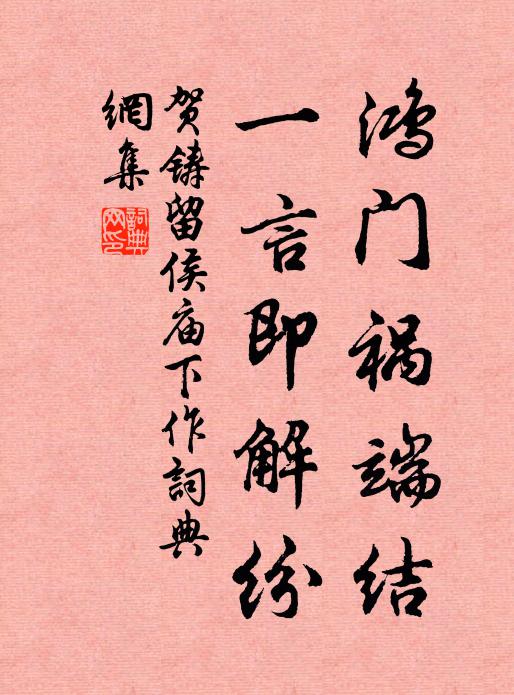 鸿门祸端结
一言即解纷
贺铸留侯庙下作詞典
網集
詞典網印